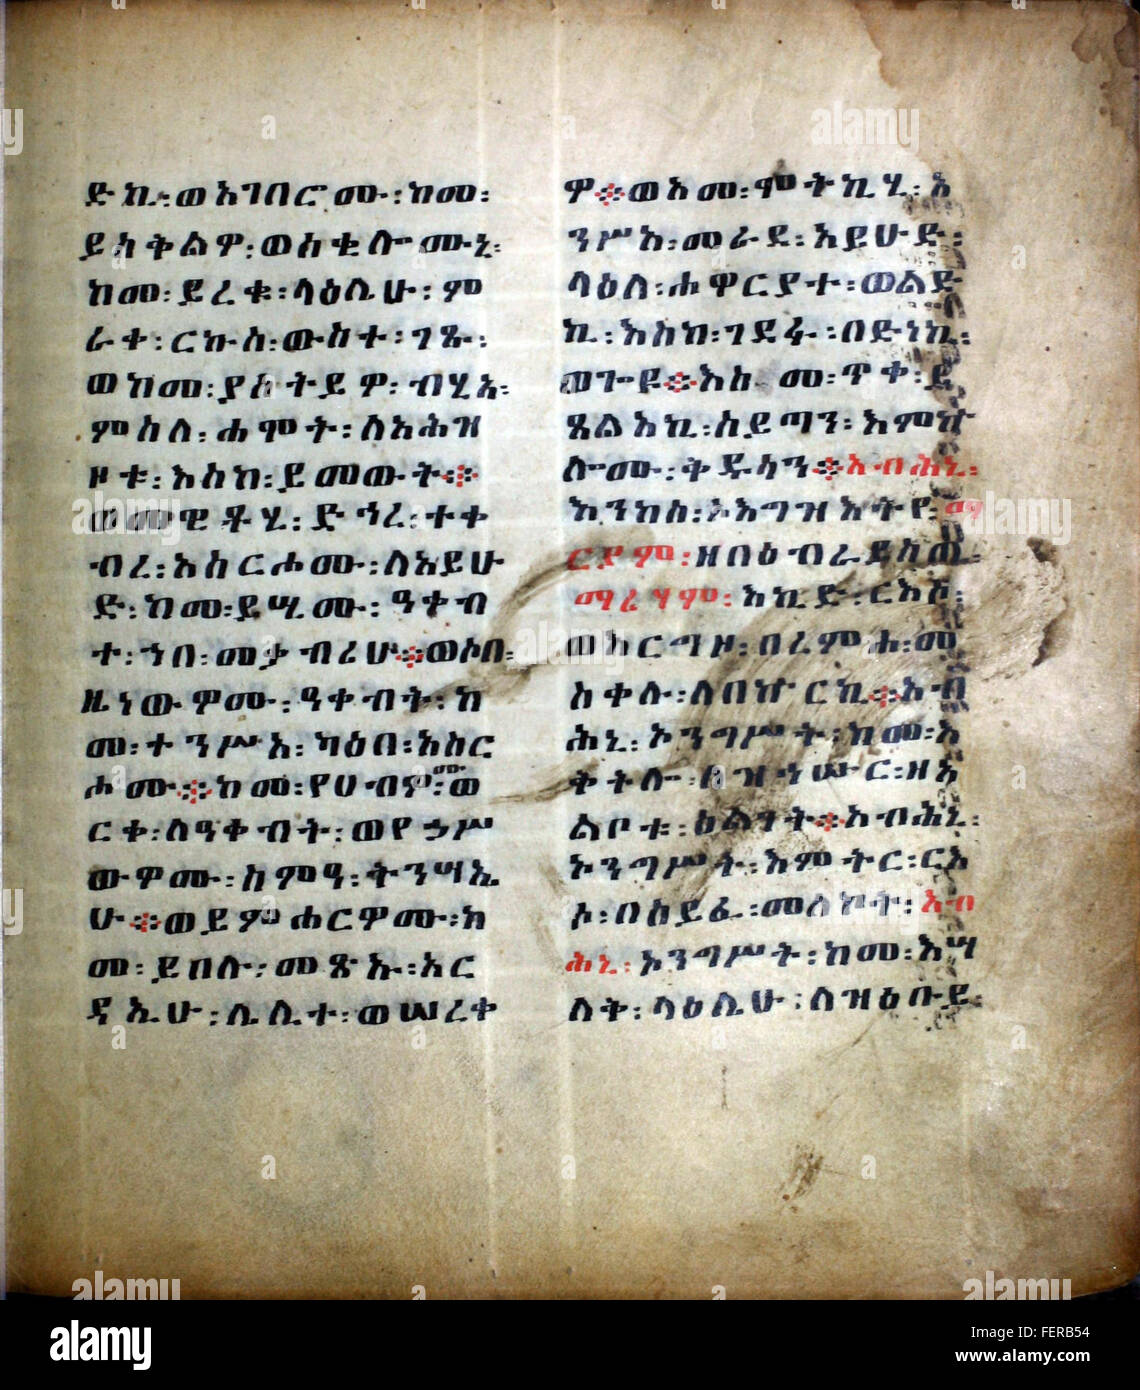 ድኪ፡ወአገበርሙ፡ከመ፡
ይስቅልዎ፡ወሰቂሎሙኒ፡
ከመ፡ይረቁ፡ላዕሌሁ፡ም
ራቀ፡ርኩስ፡ውስተ፡ገጹ፡
ወከመ፡ያስትይዎ፡ብሂአ፡
ምስለ፡ሐሞት፡ለአሕዝ
ዞቱ፡እስከ፡ይመውት፨
ወመዊቶሂ፡ድኅረ፡ተቀ
ብረ፡አስርሖሙ፡ለአይሁ
ድ፡ከመ፡ይሢሙ፡ዓቀብ
ተ፡ኀበ፡መቃብሪሁ፨ወሶበ፡
ዜነውዎሙ፡ዓቀብት፡ከ
መ፡ተንሥአ፡ካዕበ፡አስር
ሖሙ፨ከመ፡የሀብዎሙ፡ወ
ርቀ፡ለዓቀብት፡ወየኃሥ
ውዎሙ፡ከምዓ፡ትንሣኤ
ሁ፨ወይምሐርዎሙ፡ከ
መ፡ይበሉ፡መጽኡ፡አር
ዳኢሁ፡ሌሊተ፡ወሠረቀ
ዎ፨ወእመ፡ሞትኪሂ፡አ
ንሥአ፡መራደ፡አይሁድ፡
ላዕለ፡ሐዋርያተ፡ወልድ
ኪ፡እስከ፡ገደፉ፡በድነኪ፡
ወጐዩ፨እስመ፡ጥቀ፡ይ
ጼልአኪ፡ሰይጣን፡እምኵ
ሎሙ፡ቅዱሳን፨አብሕኒ፡
እንከሰ፡ኦእግዝእትየ፡ማ
ርያም፡ዘበዕብራይስጢ፡
ማሪሃም፡እኪድ፡ርእሶ፡
ወእርግዞ፡በረምሐ፡መ
ስቀሉ፡ለበዅርኪ፨አብ
ሕኒ፡ኦንግሥት፡ከመ፡እ
ቅትሎ፡ለዝ፡ነሡር፡ዘአ
ልቦቱ፡ዕልገት፨አብሕኒ፡
ኦንግሥት፡እምትር፡ርእ
ሶ፡በሰይፈ፡መለኮት፡አብ
ሕኒ፡ኦንግሥት፡ከመ፡እሣ
ለቅ፡ላዕሌሁ፡ለዝዕቡይ፡
alamy stock photo
alamy
Image ID: FERB54
www.alamy.com